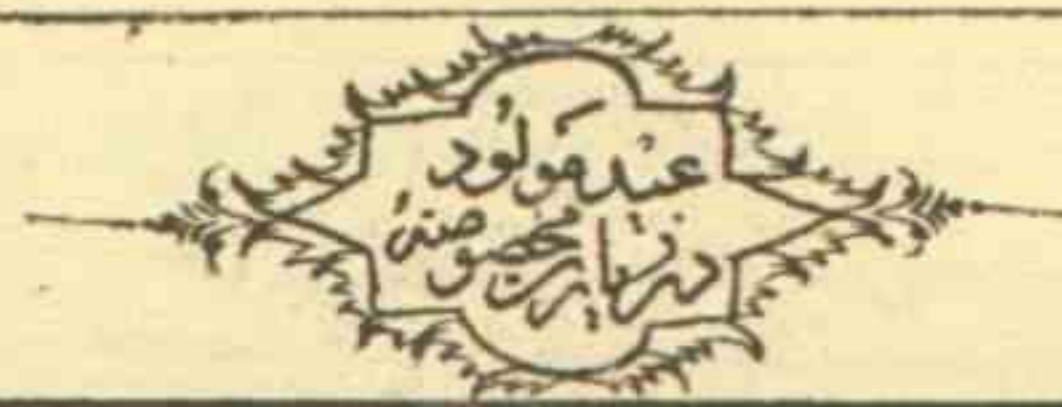 عید مولود
در زیارت مخصوصهٔ